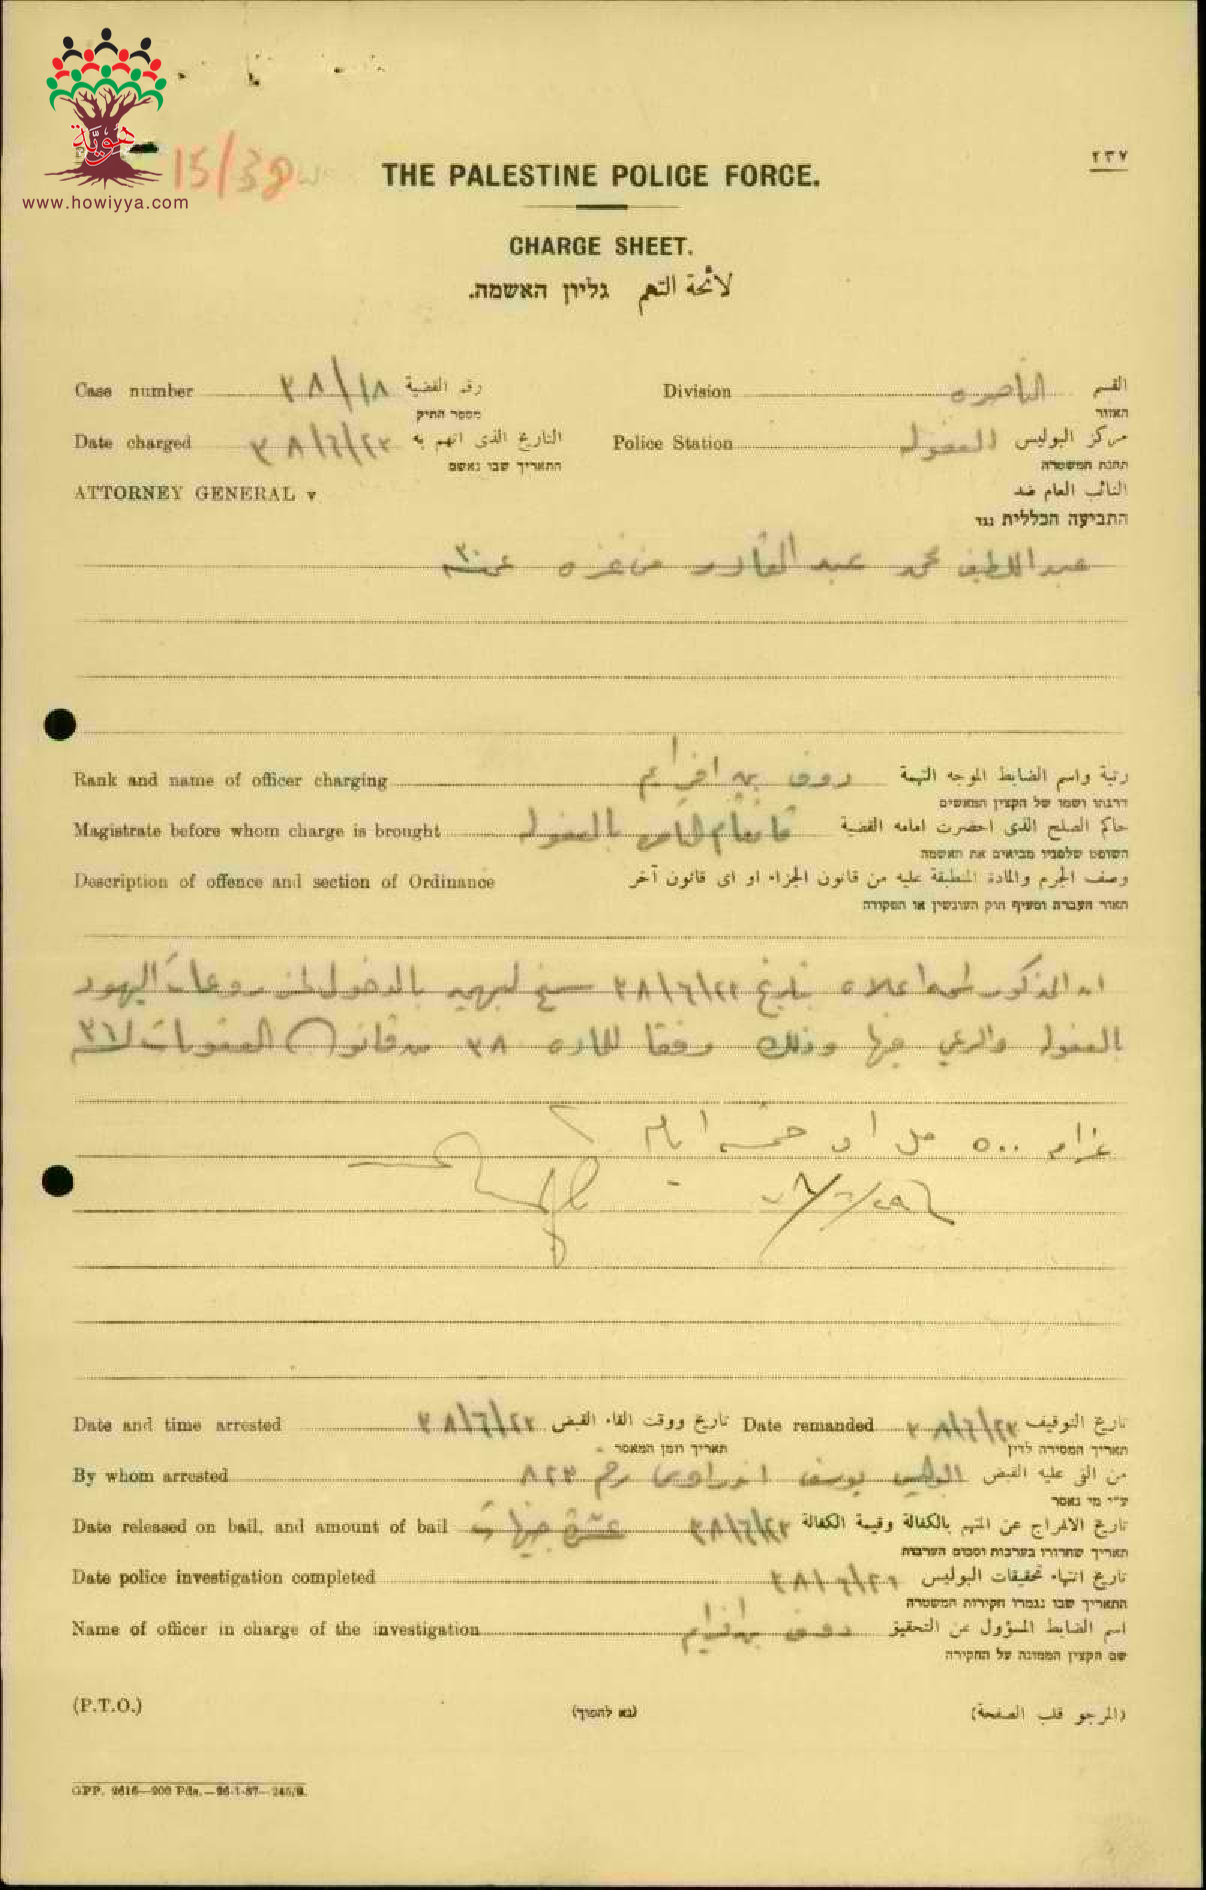 هويّة
www.howiyya.com
15/38
٢٣٧
THE PALESTINE POLICE FORCE.
CHARGE SHEET.
لائحة التهم גליון האשמה.
Case number ٣٨/١٨ رقم القضية Division الناصره القسم
מספר התיק האזור
Date charged ٣٨/٦/٢٣ التاريخ الذى اتهم به Police Station العفوله مركز البوليس
התאריך שבו נאשם תחנת המשטרה
ATTORNEY GENERAL v النائب العام ضد
התביעה הכללית נגד
عبد اللطيف محمد عبد القادر من غزه عمره ٣٠
Rank and name of officer charging رؤف بن افرايم رتبة واسم الضابط الموجه التهمة
דרגתו ושמו של הקצין המאשים
Magistrate before whom charge is brought بالعفوله حاكم الصلح الذى احضرت امامه القضية
השופט שלפניו מביאים את האשמה
Description of offence and section of Ordinance وصف الجرم والمادة المنطبقة عليه من قانون الجزاء او اى قانون آخر
תאור העברה וסעיף חוק העונשין או הפקודה
ان المذكور اسمه اعلاه بتاريخ ٣٨/٦/٢٣ سمح بالدخول لمزروعات اليهود
بالعفوله والرعي فيها وذلك وفقا للماده ٣٨ من قانون العقوبات لسنة ٣٦
غرام ٥٠٠ مل او خمسة ايام
Date and time arrested ٣٨/٦/٢٣ تاريخ ووقت القاء القبض Date remanded ٣٨/٦/٢٣ تاريخ التوقيف
תאריך וזמן המאסר תאריך המסירה לדין
By whom arrested البوليس يوسف رقم ٨٢٣ من القى عليه القبض
ע״י מי נאסר
Date released on bail, and amount of bail عشرة جنيهات ٣٨/٦/٢٣ تاريخ الافراج عن المتهم بالكفالة وقيمة الكفالة
תאריך שחרורו בערבות וסכום הערבות
Date police investigation completed ٣٨/٦/٢٦ تاريخ انتهاء تحقيقات البوليس
התאריך שבו נגמרו חקירות המשטרה
Name of officer in charge of the investigation رؤف بن افرايم اسم الضابط المسؤول عن التحقيق
שם הקצין הממונה על החקירה
(P.T.O.) (נא להפוך) (المرجو قلب الصفحة)
GPP. 2616—200 Pds.—26-1-37—245/S.